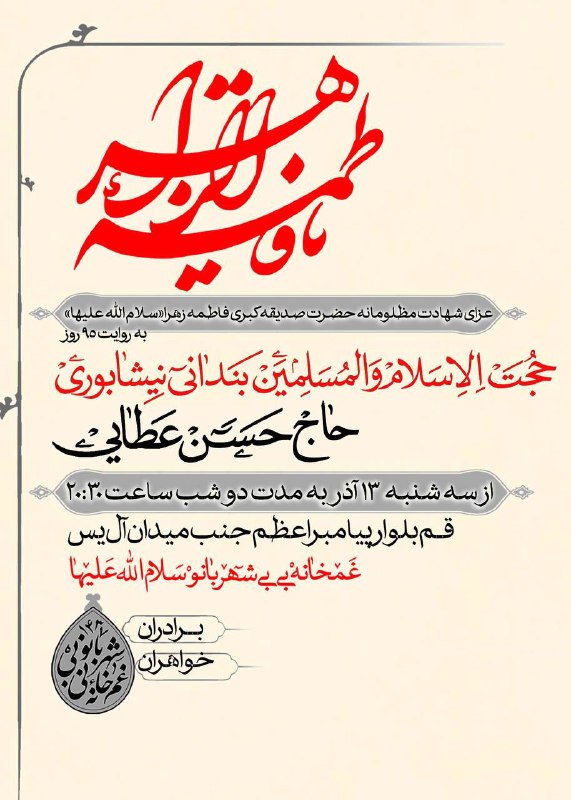 یا فاطمة الزهرا
عزای شهادت مظلومانه حضرت صدیقه کبری فاطمه زهرا«سلام الله علیها»
به روایت ۹۵ روز
حجت الاسلام والمسلمین بندانی نیشابوری
حاج حسن عطایی
از سه شنبه ۱۳ آذر به مدت دو شب ساعت ۲۰:۳۰
قم بلوار پیامبر اعظم جنب میدان آل یس
غمخانه بی بی شهربانو سلام الله علیها
برادران
خواهران
غم خانه بی بی شهربانو